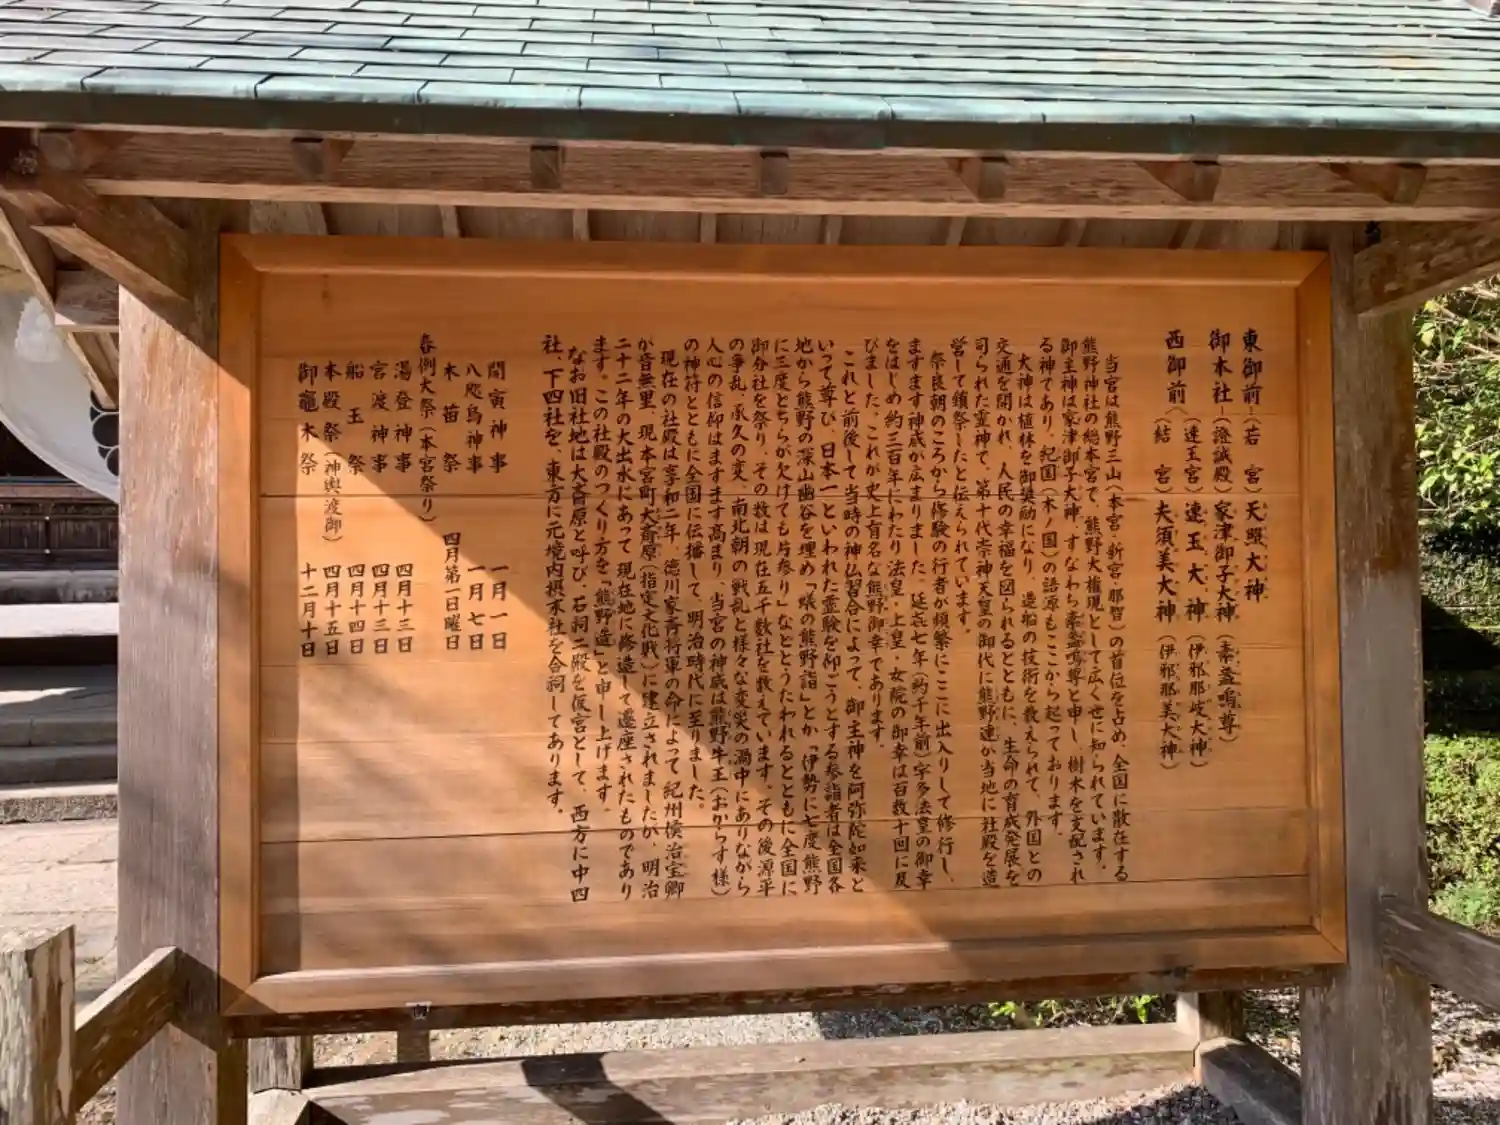 東御前―(若宮)天照大神
御本社―(證誠殿)家津御子大神(素盞嗚尊)
(速玉宮)速玉大神(伊邪那岐大神)
西御前(結宮)夫須美大神(伊邪那美大神)
当宮は熊野三山(本宮・新宮・那智)の首位を占め、全国に散在する
熊野神社の総本宮で、熊野大権現として広く世に知られています。
御主神は家津御子大神、すなわち素盞嗚尊と申し、樹木を支配され
る神であり、紀国(木ノ国)の語源もここから起っております。
大神は植林を御奨励になり、造船の技術を教えられて、外国との
交通を開かれ、人民の幸福を図られるとともに、生命の育成発展を
司られた霊神で、第十代崇神天皇の御代に熊野連が当地に社殿を造
営して鎮祭したと伝えられています。
奈良朝のころから修験の行者が頻繁にここに出入りして修行し、
ますます神威が広まりました。延喜七年(約千年前)宇多法皇の御幸
をはじめ約三百年にわたり法皇・上皇・女院の御幸は百数十回に及
びました。これが史上有名な熊野御幸であります。
これと前後して当時の神仏習合によって、御主神を阿弥陀如来と
いって尊び、日本一といわれた霊験を仰ごうとする参詣者は全国各
地から熊野の深山幽谷を埋め「蟻の熊野詣」とか「伊勢に七度熊野
に三度どちらが欠けても片参り」などとうたわれるとともに全国に
御分社を祭り、その数は現在五千数社を数えています。その後源平
の争乱・承久の変、南北朝の戦乱と様々な変災の渦中にありながら
人心の信仰はますます高まり、当宮の神威は熊野牛王(おからす様)
の神符とともに全国に伝播して、明治時代に至りました。
現在の社殿は享和二年、徳川家斉将軍の命によって紀州侯治宝卿
が音無里、現本宮町大斎原(指定文化財)に建立されましたが、明治
二十二年の大出水にあって現在地に修造して遷座されたものであり
ます。この社殿のつくり方を「熊野造」と申し上げます。
なお旧社地は大斎原と呼び、石祠二殿を仮宮として、西方に中四
社、下四社を、東方に元境内摂末社を合祠してあります。
開寅神事 一月一日
八咫烏神事 一月七日
木苗祭 四月第一日曜日
春例大祭(本宮祭り)
湯登神事 四月十三日
宮渡神事 四月十三日
船玉祭 四月十四日
本殿祭(神輿渡御) 四月十五日
御竈木祭 十二月十日